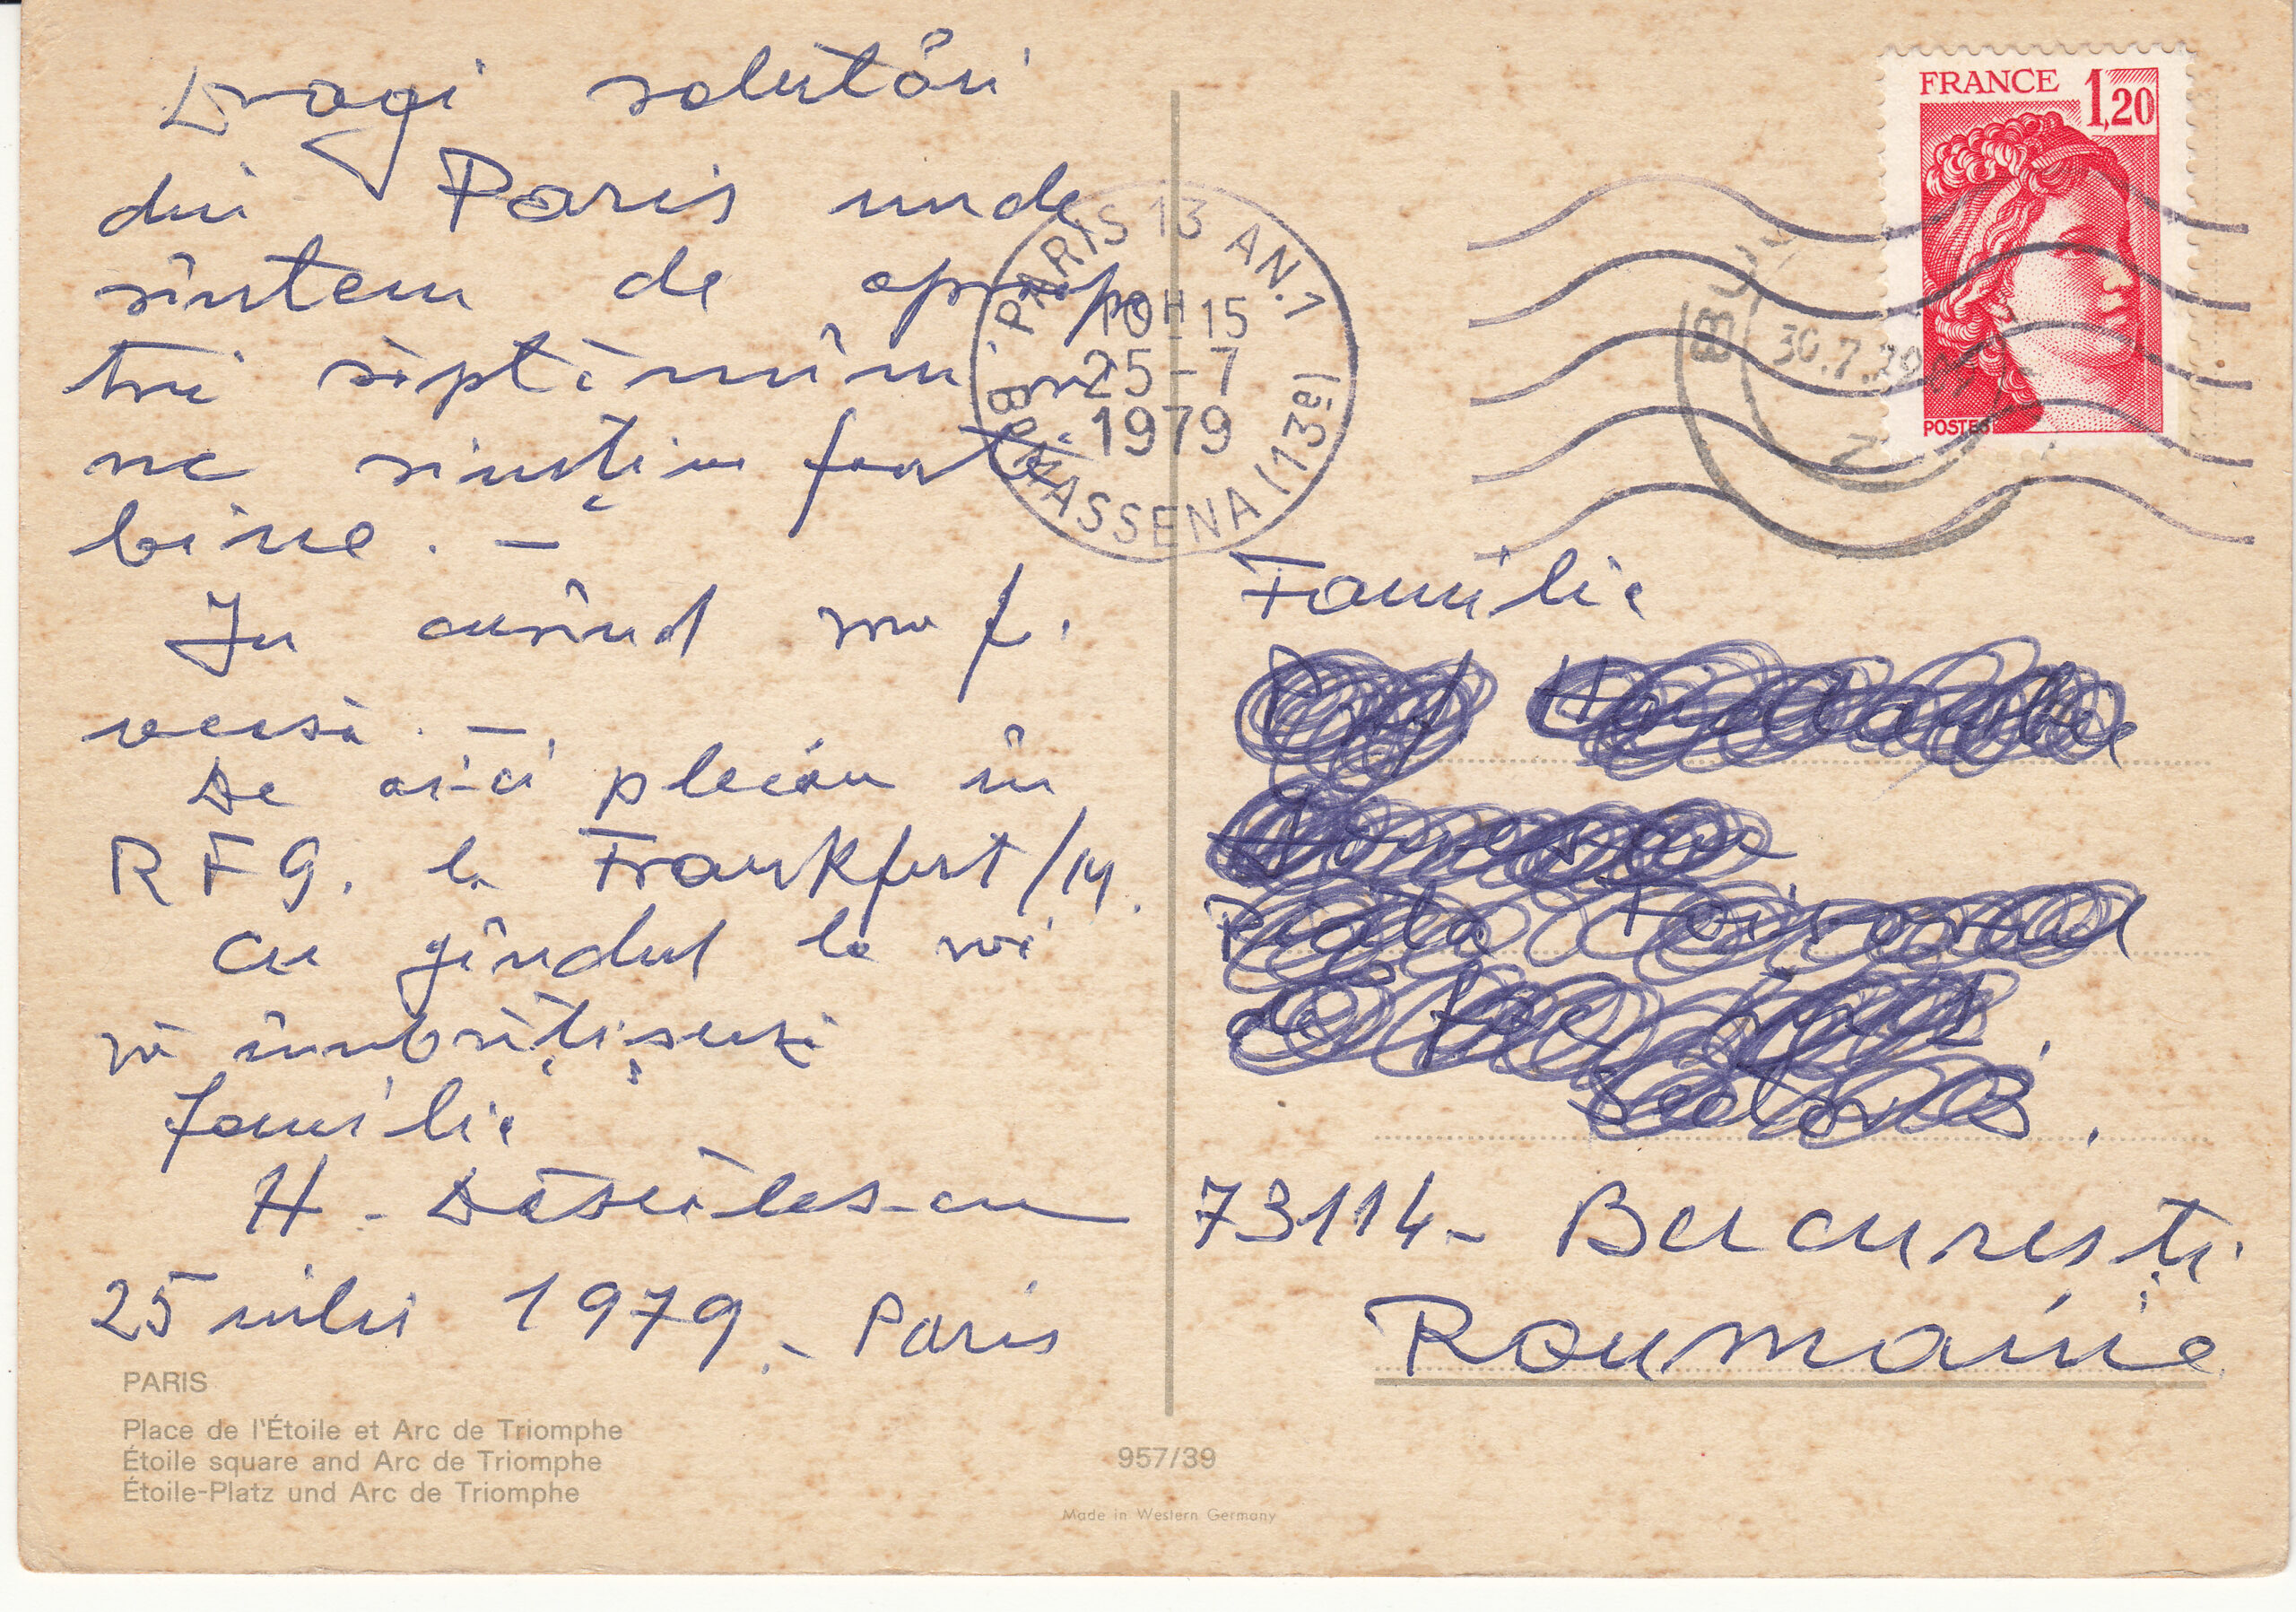 Dragi salutări
din Paris unde
sîntem de aproape
trei săptămîni și
ne simțim foarte
bine. –
In curînd vom f.
versa. –
De aici plecăm în
RFG. la Frankfurt/M.
Cu gîndul la voi
vă îmbrățișează
familia
H. Dăscălescu
25 iulie 1979. – Paris
PARIS
Place de l'Étoile et Arc de Triomphe
Étoile square and Arc de Triomphe
Étoile-Platz und Arc de Triomphe
957/39
Made in Western Germany
PARIS 13 AN.1
10H-15
25-7
1979
BD MASSENA (13e)
FRANCE 1,20
POSTES
30.7.
Familia
73114 – București
Roumainie